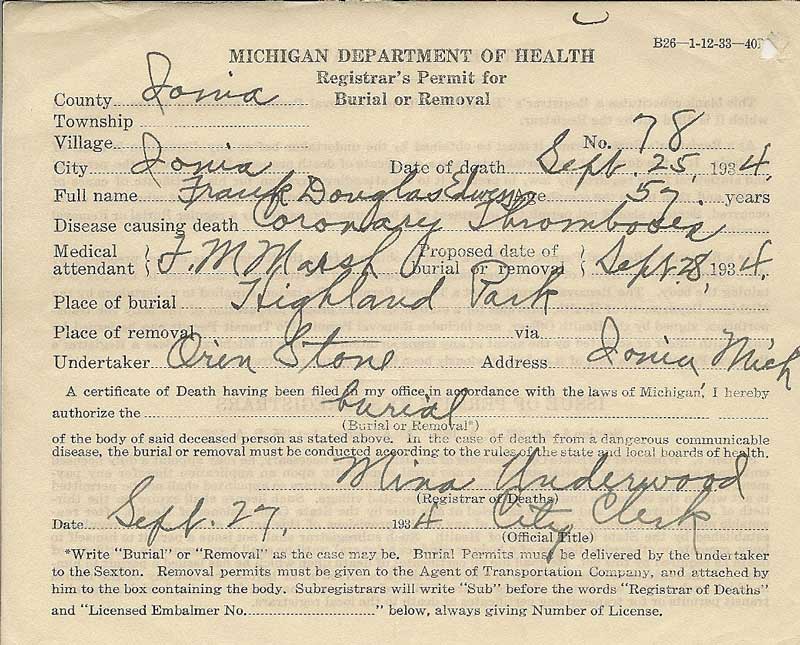 B26—1-12-33—40
MICHIGAN DEPARTMENT OF HEALTH
Registrar's Permit for
Burial or Removal
County Ionia
Township
Village No. 78
City Ionia Date of death Sept. 25, 1934.
Full name Frank Douglas Age 57. years
Disease causing death Coronary Thromboses
Medical attendant F. M. Marsh Proposed date of burial or removal Sept. 28, 1934.
Place of burial Highland Park
Place of removal via
Undertaker Oren Stone Address Ionia Mich
A certificate of Death having been filed in my office in accordance with the laws of Michigan, I hereby
authorize the burial
(Burial or Removal*)
of the body of said deceased person as stated above. In the case of death from a dangerous communicable
disease, the burial or removal must be conducted according to the rules of the state and local boards of health.
Mina Underwood
(Registrar of Deaths)
Date Sept. 27, 1934 City Clerk
(Official Title)
*Write "Burial" or "Removal" as the case may be. Burial Permits must be delivered by the undertaker
to the Sexton. Removal permits must be given to the Agent of Transportation Company, and attached by
him to the box containing the body. Subregistrars will write "Sub" before the words "Registrar of Deaths"
and "Licensed Embalmer No." below, always giving Number of License.